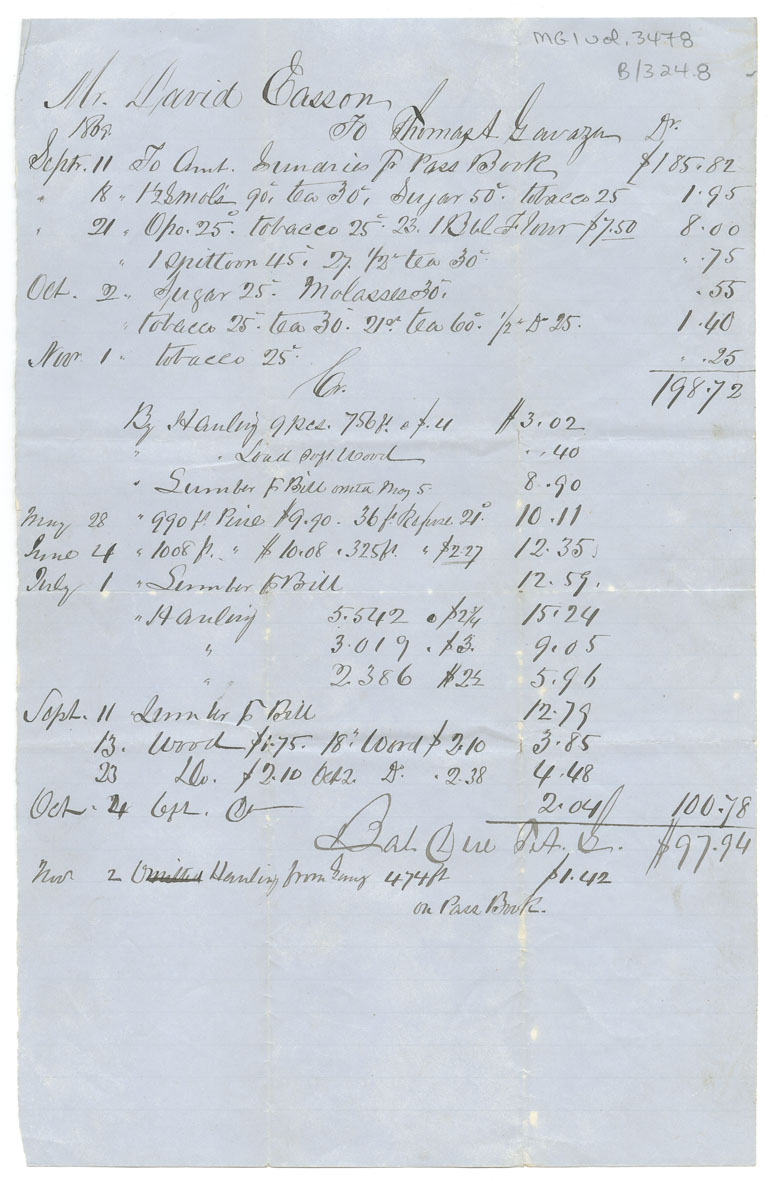 MG1 vol. 3478
B/324.8
Mr. David Easson
To Thomas A. Gavaza Dr.
Septr. 11 To Amt. Sundries pr Pass Book $185.82
" 18 " 1½ Gmols 90, tea 30, Sugar 50. tobacco 25 1.95
" 21 " 25. tobacco 25. 23. 1 Bbl Flour $7.50 8.00
" 1 Spittoon 45, 27. 1/2 tea 30 .75
Oct. 2 " Sugar 25. Molasses 30, .55
" tobacco 25. tea 30. 21st tea 60. 1/2 Do 25. 1.40
Novr 1 " tobacco 25. " .25
Cr. 198.72
By Hauling 9 pcs. 756 ft. @ $.4 $3.02
" " Load soft Wood .40
" Lumber pr Bill May 5. 8.90
May 28 " 990 ft. Pine $9.90. 36 ft. Refuse 21. 10.11
June 4 " 1008 ft. " $10.08. 325 ft. " $2.27 12.35
July 1 " Lumber pr Bill 12.59.
" Hauling 5.542 @ $2¾ 15.24
" 3.019 . $3. 9.05
" 2.386 $2½ 5.96
Sept. 11 Lumber pr Bill 12.79
13. Wood $1.75. 18" Wood $2.10 3.85
23 Do. $2.10 Oct 2. Do. .2.38 4.48
Oct. 24 2.04 100.78
Bal Due T.A.G. $97.94
Nov 2 Omitted Hauling from Jany 474 ft $1.42
on Pass Book.